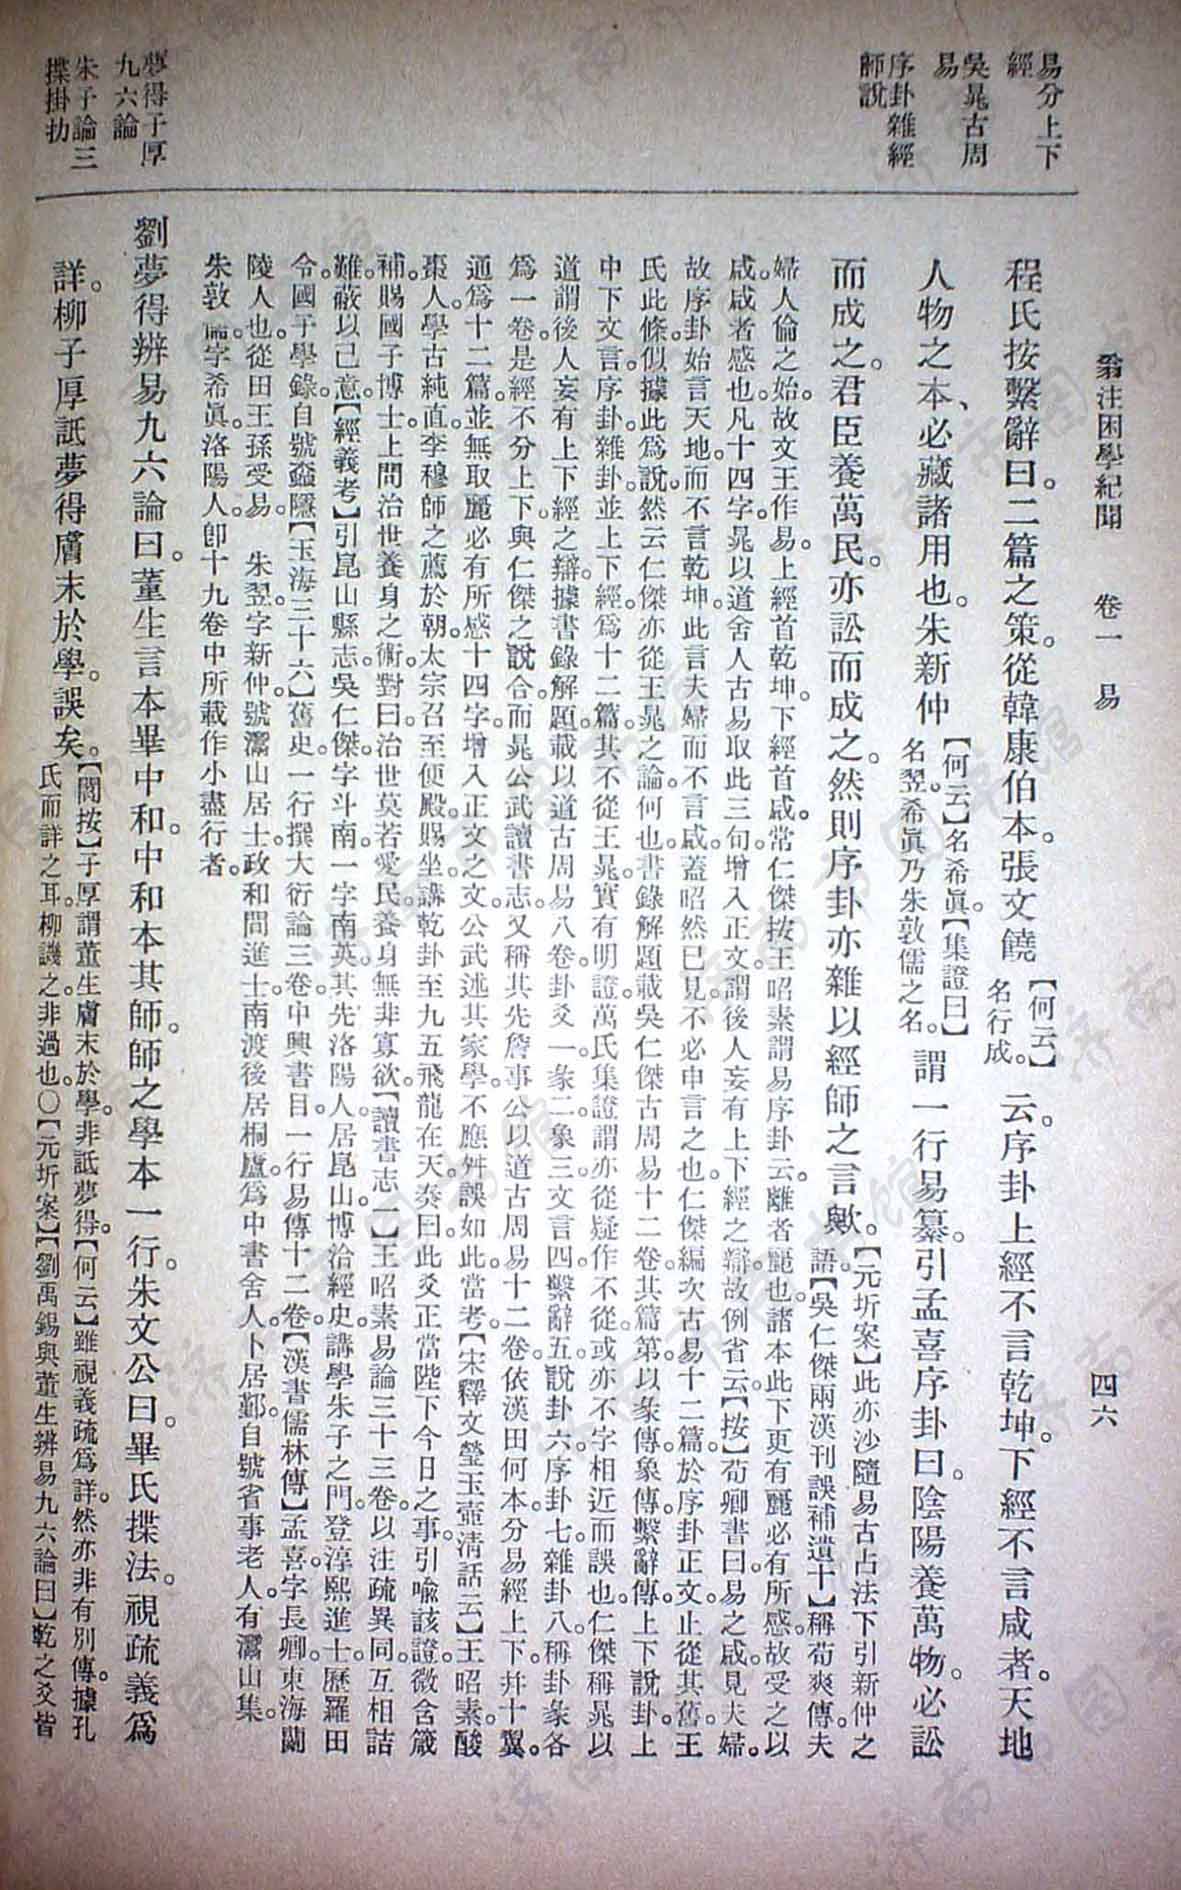 翁注困學紀聞　卷一　易　四六
易分上下
經
吳晁古周
易
序卦雜經
師說
夢得子厚
九六論
朱子論三
揲掛扐
程氏按繫辭曰。二篇之策。從韓康伯本。張文饒【何云】名行成。云。序卦上經不言乾坤。下經不言咸者。天地
人物之本、必藏諸用也。朱新仲【何云】名希眞。【集證曰】名翌。希眞乃朱敦儒之名。謂一行易纂。引孟喜序卦曰。陰陽養萬物。必訟
而成之。君臣養萬民。亦訟而成之。然則序卦亦雜以經師之言歟。【元圻案】此亦沙隨易古占法下引新仲之
語。【吳仁傑兩漢刊誤補遺十】稱荀爽傳。夫
婦人倫之始。故文王作易。上經首乾坤。下經首咸。常仁傑按王昭素謂易序卦云。離者麗也。諸本此下更有麗必有所感。故受之以
咸。咸者感也。凡十四字。晁以道舍人古易取此三句。增入正文。謂後人妄有上下經之辯。故例省云。【按】荀卿書曰。易之咸。見夫婦。
故序卦始言天地。而不言乾坤。此言夫婦而不言咸。蓋昭然已見。不必申言之也。仁傑編次古易十二篇。於序卦正文。止從其舊。王
氏此條。似據此爲說。然云仁傑亦從王晁之論。何也。書錄解題載吳仁傑古周易十二卷。其篇第。以彖傳。象傳。繫辭傳。上下說卦。上
中下文言。序卦。雜卦。並上下經。爲十二篇。其不從王晁。實有明證。萬氏集證。謂亦從疑作不從。或亦不字相近而誤也。仁傑稱晁以
道謂後人妄有上下經之辯。據書錄解題。載以道古周易八卷。卦爻一。彖二。象三。文言四。繫辭五。說卦六。序卦七。雜卦八。稱卦彖各
爲一卷。是經不分上下。與仁傑之說合。而晁公武讀書志。又稱其先詹事公以道古周易十二卷。依漢田何本。分易經上下。幷十翼。
通爲十二篇。並無取麗必有所感十四字。增入正文之文。公武述其家學。不應舛誤如此。當考。【宋釋文瑩玉壺淸話云】王昭素。酸
棗人。學古純直。李穆師之。薦於朝。太宗召至便殿。賜坐。講乾卦至九五飛龍在天。奏曰。此爻正當陛下今日之事。引喩該證。微含箴
補。賜國子博士。上問治世養身之術。對曰。治世莫若愛民。養身無非寡欲。【讀書志一】王昭素易論三十三卷。以注疏異同。互相詰
難。蔽以己意。【經義考】引崑山縣志。吳仁傑。字斗南。一字南英。其先洛陽人。居崑山。博洽經史。講學朱子之門。登淳熙進士。歷羅田
令。國子學錄。自號蠹隱。【玉海三十六】舊史。一行撰大衍論三卷。中興書目。一行易傳十二卷。【漢書儒林傳】孟喜。字長卿。東海蘭
陵人也。從田王孫受易。　朱翌。字新仲。號灊山居士。政和間進士。南渡後居桐廬。爲中書舍人。卜居鄞。自號省事老人。有灊山集。
朱敦儒。字希眞。洛陽人。卽十九卷中所載作小盡行者。
劉夢得辨易九六論曰。董生言本畢中和。中和本其師。師之學本一行。朱文公曰。畢氏揲法。視疏義爲
詳。柳子厚詆夢得膚末於學。誤矣。【閻按】子厚謂董生膚末於學。非詆夢得。【何云】雖視義疏爲詳。然亦非有別傳。據孔
氏而詳之耳。柳譏之非過也。〇【元圻案】【劉禹錫與董生辨易九六論曰】乾之爻皆